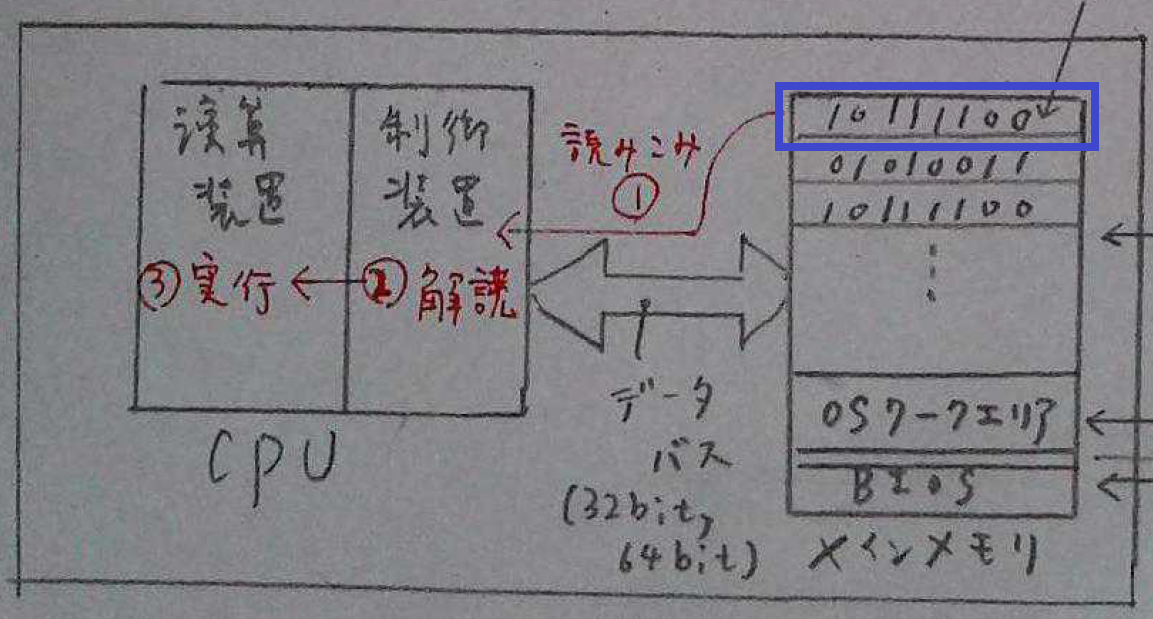 演算
装置
③実行
制御
装置
②解読
CPU
読みこみ
①
データ
バス
(32bit,
64bit)
10111100
01010011
10111100
OSワークエリア
BIOS
メインメモリ